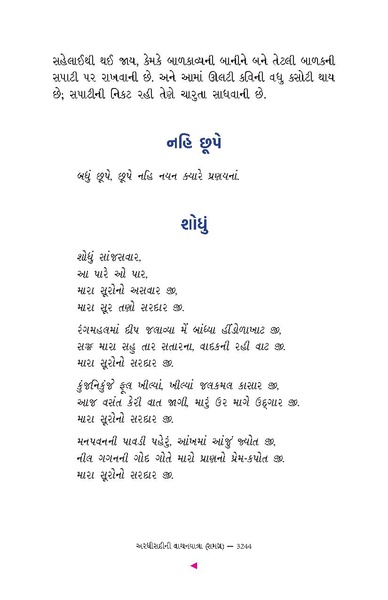 સહેલાઈથી થઈ જાય, કેમકે બાળકાવ્યની બાનીને બને તેટલી બાળકની
સપાટી પર રાખવાની છે. અને આમાં ઊલટી કવિની વધુ કસોટી થાય
છે; સપાટીની નિકટ રહી તેણે ચારુતા સાધવાની છે.
નહિ છૂપે
બધું છૂપે, છૂપે નહિ નયન ક્યારે પ્રણયનાં.
શોધું
શોધું સાંજસવાર,
આ પારે ઓ પાર,
મારા સૂરોનો અસવાર જી,
મારા સૂર તણો સરદાર જી.
રંગમહલમાં દીપ જલાવ્યા મેં બાંધ્યા હીંડોળાખાટ જી,
સજ્જ મારા સહુ તાર સતારના, વાદકની રહી વાટ જી.
મારા સૂરોનો સરદાર જી.
કુંજનિકુંજે ફૂલ ખીલ્યાં, ખીલ્યાં જલકમલ કાસાર જી,
આજ વસંત કેરી વાત જાગી, મારું ઉર માગે ઉદ્ગાર જી.
મારા સૂરોનો સરદાર જી.
મનપવનની પાવડી પહેરું, આંખમાં આંજું જ્યોત જી,
નીલ ગગનની ગોદ ગોતે મારો પ્રાણનો પ્રેમ-કપોત જી.
મારા સૂરોનો સરદાર જી.
અરધીસદીની વાચનયાત્રા (સમગ્ર) — 3244